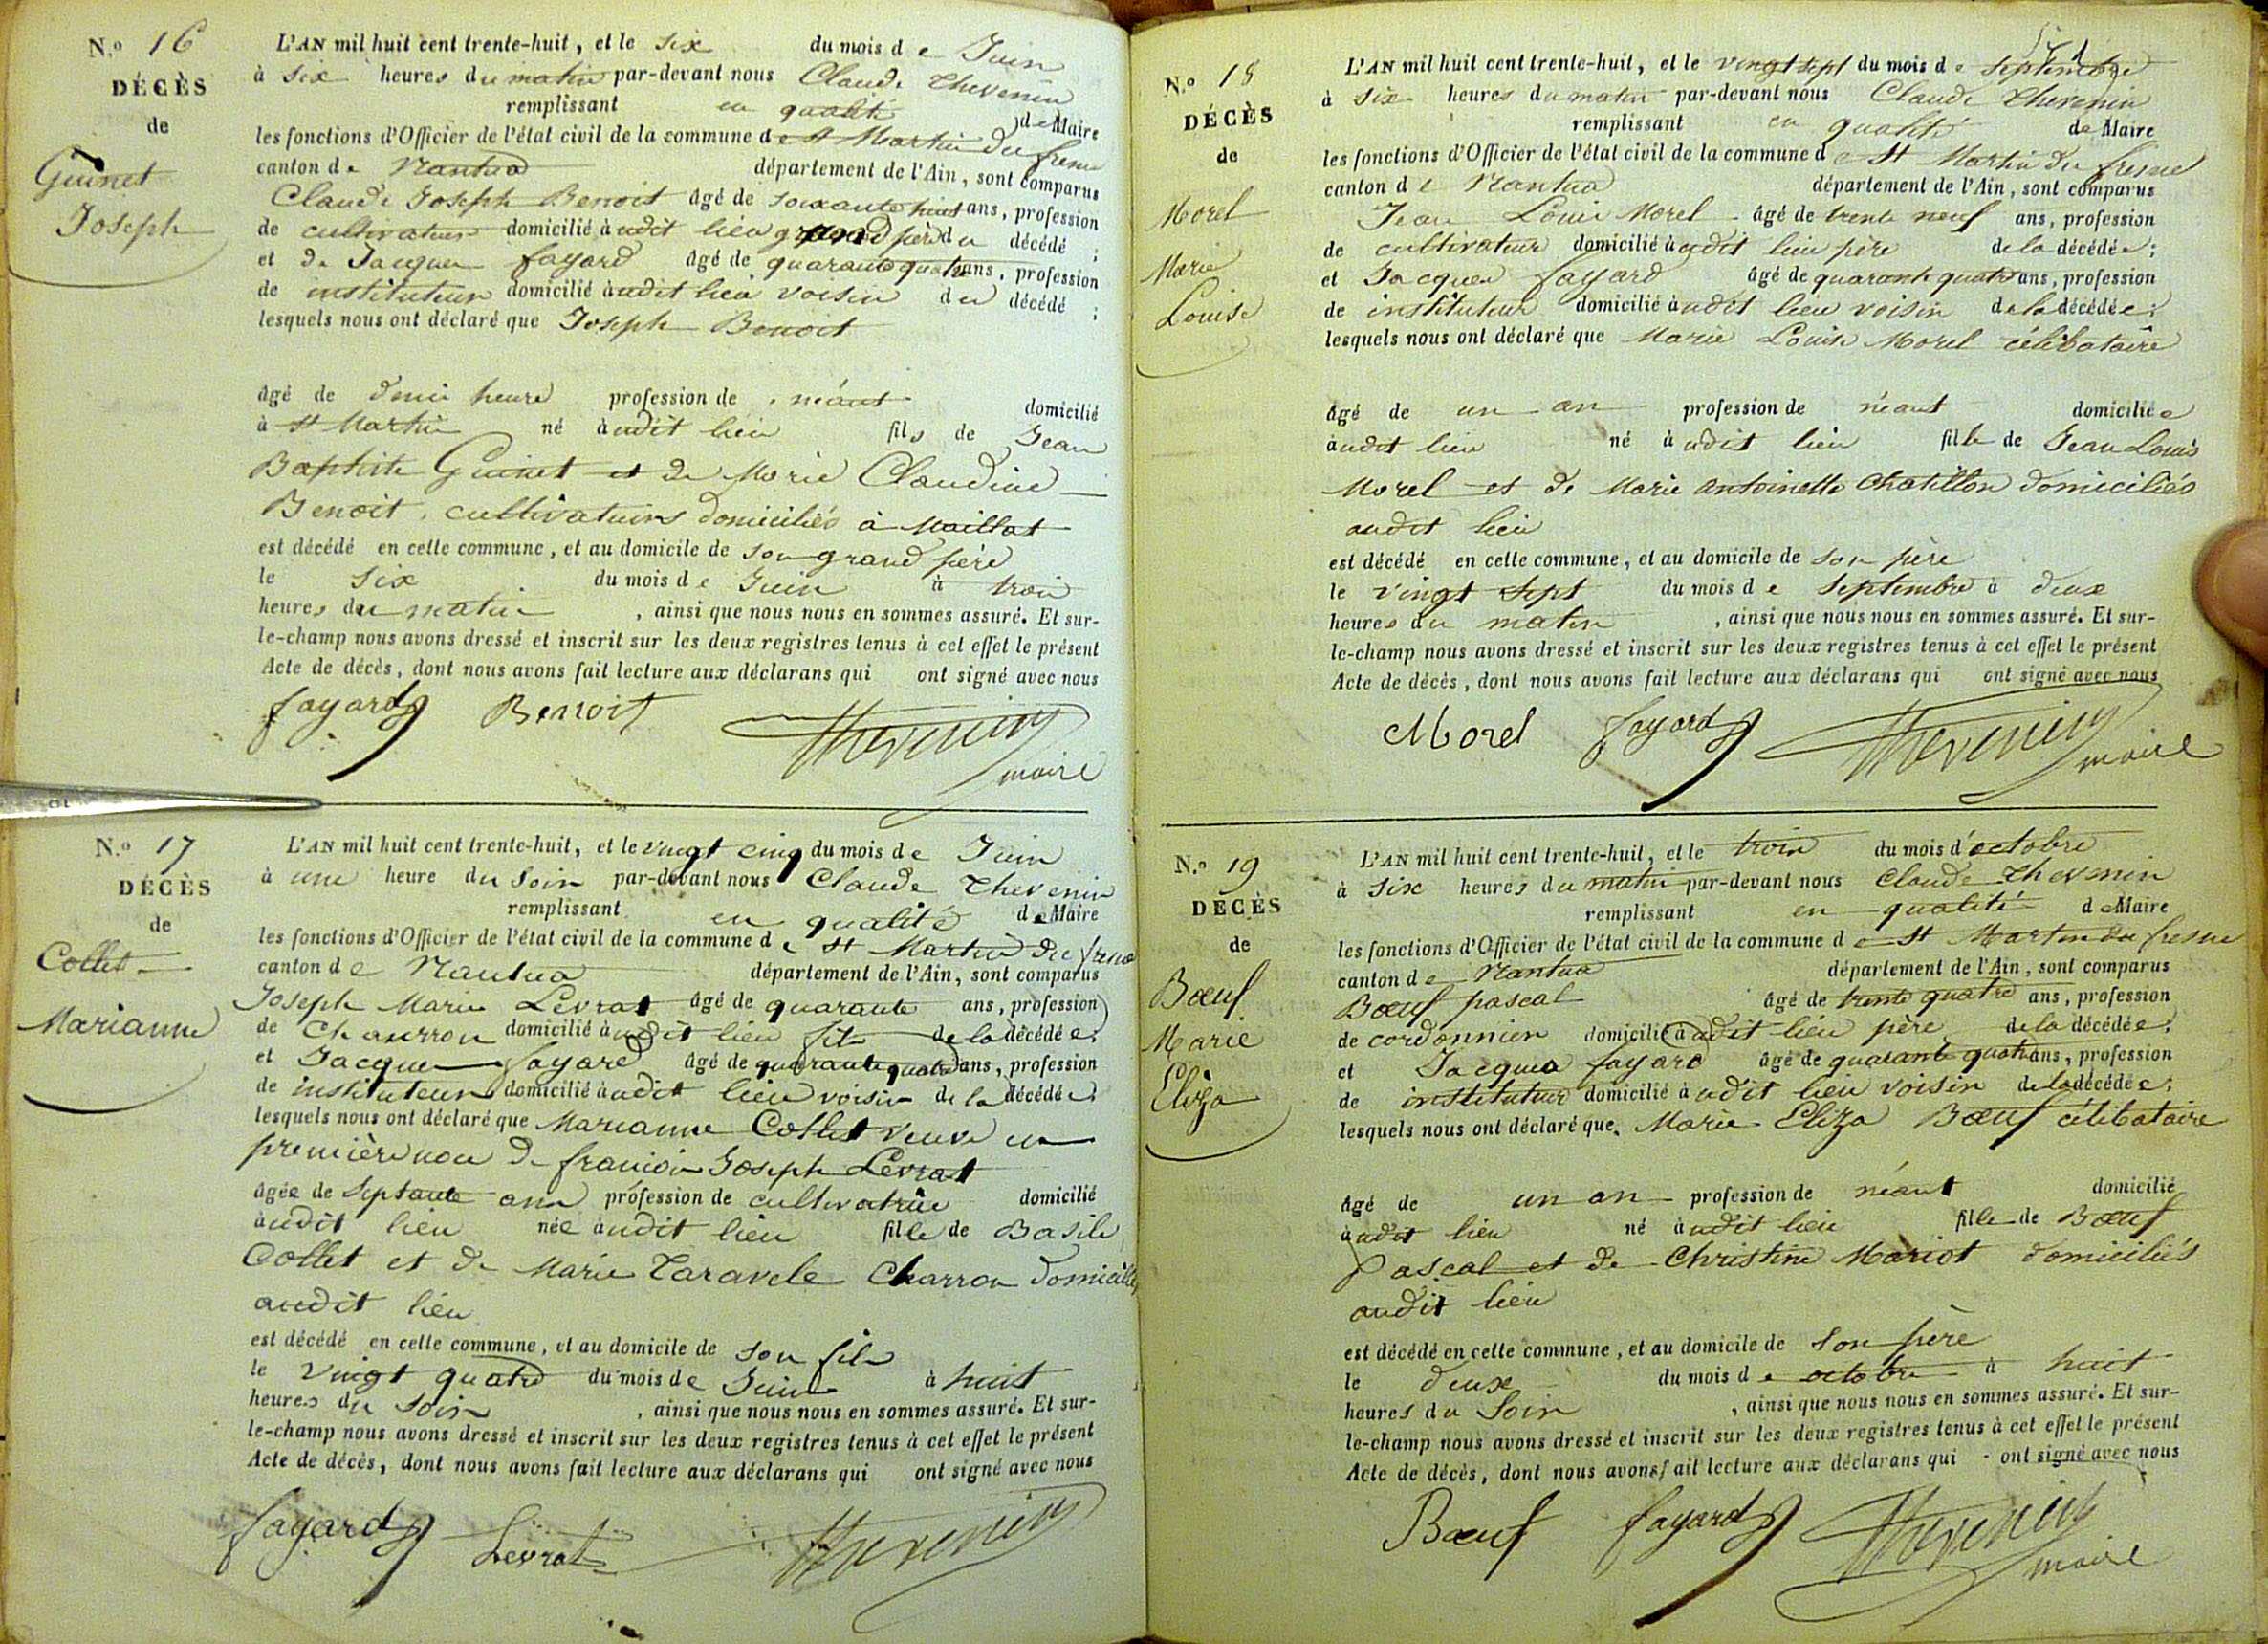 N.º 16
DÉCÈS
de
Guinet
Joseph
L'AN mil huit cent trente-huit, et le six du mois de Juin
à six heures du matin par-devant nous Claude Thevenin
remplissant en qualité de Maire
les fonctions d'Officier de l'état civil de la commune de St Martin du fresne
canton de Nantua département de l'Ain, sont comparus
Claude Joseph Benoit âgé de soixante huit ans, profession
de cultivateur domicilié audit lieu grand père du décédé ;
et de Jacques fayard âgé de quarante quatre ans, profession
de instituteur domicilié audit lieu voisin du décédé ;
lesquels nous ont déclaré que Joseph Benoit
âgé de demi heure profession de néant domicilié
à St Martin né audit lieu fils de Jean
Baptiste Guinet et de Marie Claudine
Benoit, cultivateurs domiciliés à Maillat
est décédé en cette commune, et au domicile de son grand père
le six du mois de Juin à trois
heures du matin, ainsi que nous nous en sommes assuré. Et sur-
le-champ nous avons dressé et inscrit sur les deux registres tenus à cet effet le présent
Acte de décès, dont nous avons fait lecture aux déclarans qui ont signé avec nous
fayard Benoit Thevenin
maire
N.º 17
DÉCÈS
de
Collet
Marianne
L'AN mil huit cent trente-huit, et le vingt cinq du mois de Juin
à une heure du soir par-devant nous Claude Thevenin
remplissant en qualité de Maire
les fonctions d'Officier de l'état civil de la commune de St Martin du fresne
canton de Nantua département de l'Ain, sont comparus
Joseph Marie Levrat âgé de quarante ans, profession
de Charron domicilié audit lieu fils de la décédée ;
et Jacques fayard âgé de quarante quatre ans, profession
de instituteur domicilié audit lieu voisin de la décédée ;
lesquels nous ont déclaré que Marianne Collet veuve en
première noce de françois Joseph Levrat
âgée de septante ans profession de cultivatrice domicilié
audit lieu née audit lieu fille de Basile
Collet et de Marie Taravele Charron domiciliés
audit lieu
est décédé en cette commune, et au domicile de son fils
le vingt quatre du mois de Juin à huit
heures du soir, ainsi que nous nous en sommes assuré. Et sur-
le-champ nous avons dressé et inscrit sur les deux registres tenus à cet effet le présent
Acte de décès, dont nous avons fait lecture aux déclarans qui ont signé avec nous
fayard Levrat Thevenin
N.º 18
DÉCÈS
de
Morel
Marie
Louise
L'AN mil huit cent trente-huit, et le vingt sept du mois de septembre
à six heures du matin par-devant nous Claude Thevenin
remplissant en qualité de Maire
les fonctions d'Officier de l'état civil de la commune de St Martin du fresne
canton de Nantua département de l'Ain, sont comparus
Jean Louis Morel âgé de trente neuf ans, profession
de cultivateur domicilié audit lieu père de la décédée ;
et Jacques fayard âgé de quarante quatre ans, profession
de instituteur domicilié audit lieu voisin de la décédée ;
lesquels nous ont déclaré que Marie Louise Morel célibataire
âgé de un an profession de néant domiciliée
audit lieu né audit lieu fille de Jean Louis
Morel et de Marie antoinette Chatillon domiciliés
audit lieu
est décédé en cette commune, et au domicile de son père
le vingt sept du mois de Septembre à deux
heures du matin, ainsi que nous nous en sommes assuré. Et sur-
le-champ nous avons dressé et inscrit sur les deux registres tenus à cet effet le présent
Acte de décès, dont nous avons fait lecture aux déclarans qui ont signé avec nous
Morel fayard Thevenin
maire
N.º 19
DÉCÈS
de
Bœuf
Marie
Eliza
L'AN mil huit cent trente-huit, et le trois du mois d'octobre
à six heures du matin par-devant nous Claude Thevenin
remplissant en qualité de Maire
les fonctions d'Officier de l'état civil de la commune de St Martin du fresne
canton de Nantua département de l'Ain, sont comparus
Bœuf pascal âgé de trente quatre ans, profession
de cordonnier domicilié audit lieu père de la décédée ;
et Jacques fayard âgé de quarante quatre ans, profession
de instituteur domicilié audit lieu voisin de la décédée ;
lesquels nous ont déclaré que Marie Eliza Bœuf célibataire
âgé de un an profession de néant domicilié
audit lieu né audit lieu fille de Bœuf
Pascal et de Christine Mariot domiciliés
audit lieu
est décédé en cette commune, et au domicile de son père
le deux du mois de octobre à huit
heures du Soir, ainsi que nous nous en sommes assuré. Et sur-
le-champ nous avons dressé et inscrit sur les deux registres tenus à cet effet le présent
Acte de décès, dont nous avons fait lecture aux déclarans qui ont signé avec nous
Bœuf fayard Thevenin
maire